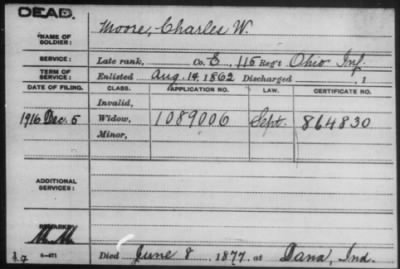 DEAD.
NAME OF SOLDIER: Moore, Charles W.
SERVICE: Late rank, Co. E, 115 Reg't Ohio Inf.
TERM OF SERVICE: Enlisted Aug. 19, 1862 Discharged , 1
DATE OF FILING. CLASS. APPLICATION NO. LAW. CERTIFICATE NO.
Invalid,
1916 Dec. 5 Widow, 1089006 Sept. 864830
Minor,
ADDITIONAL SERVICES:
REMARKS:
M.M.
3-471
Died June 8, 1877, at Dana, Ind.